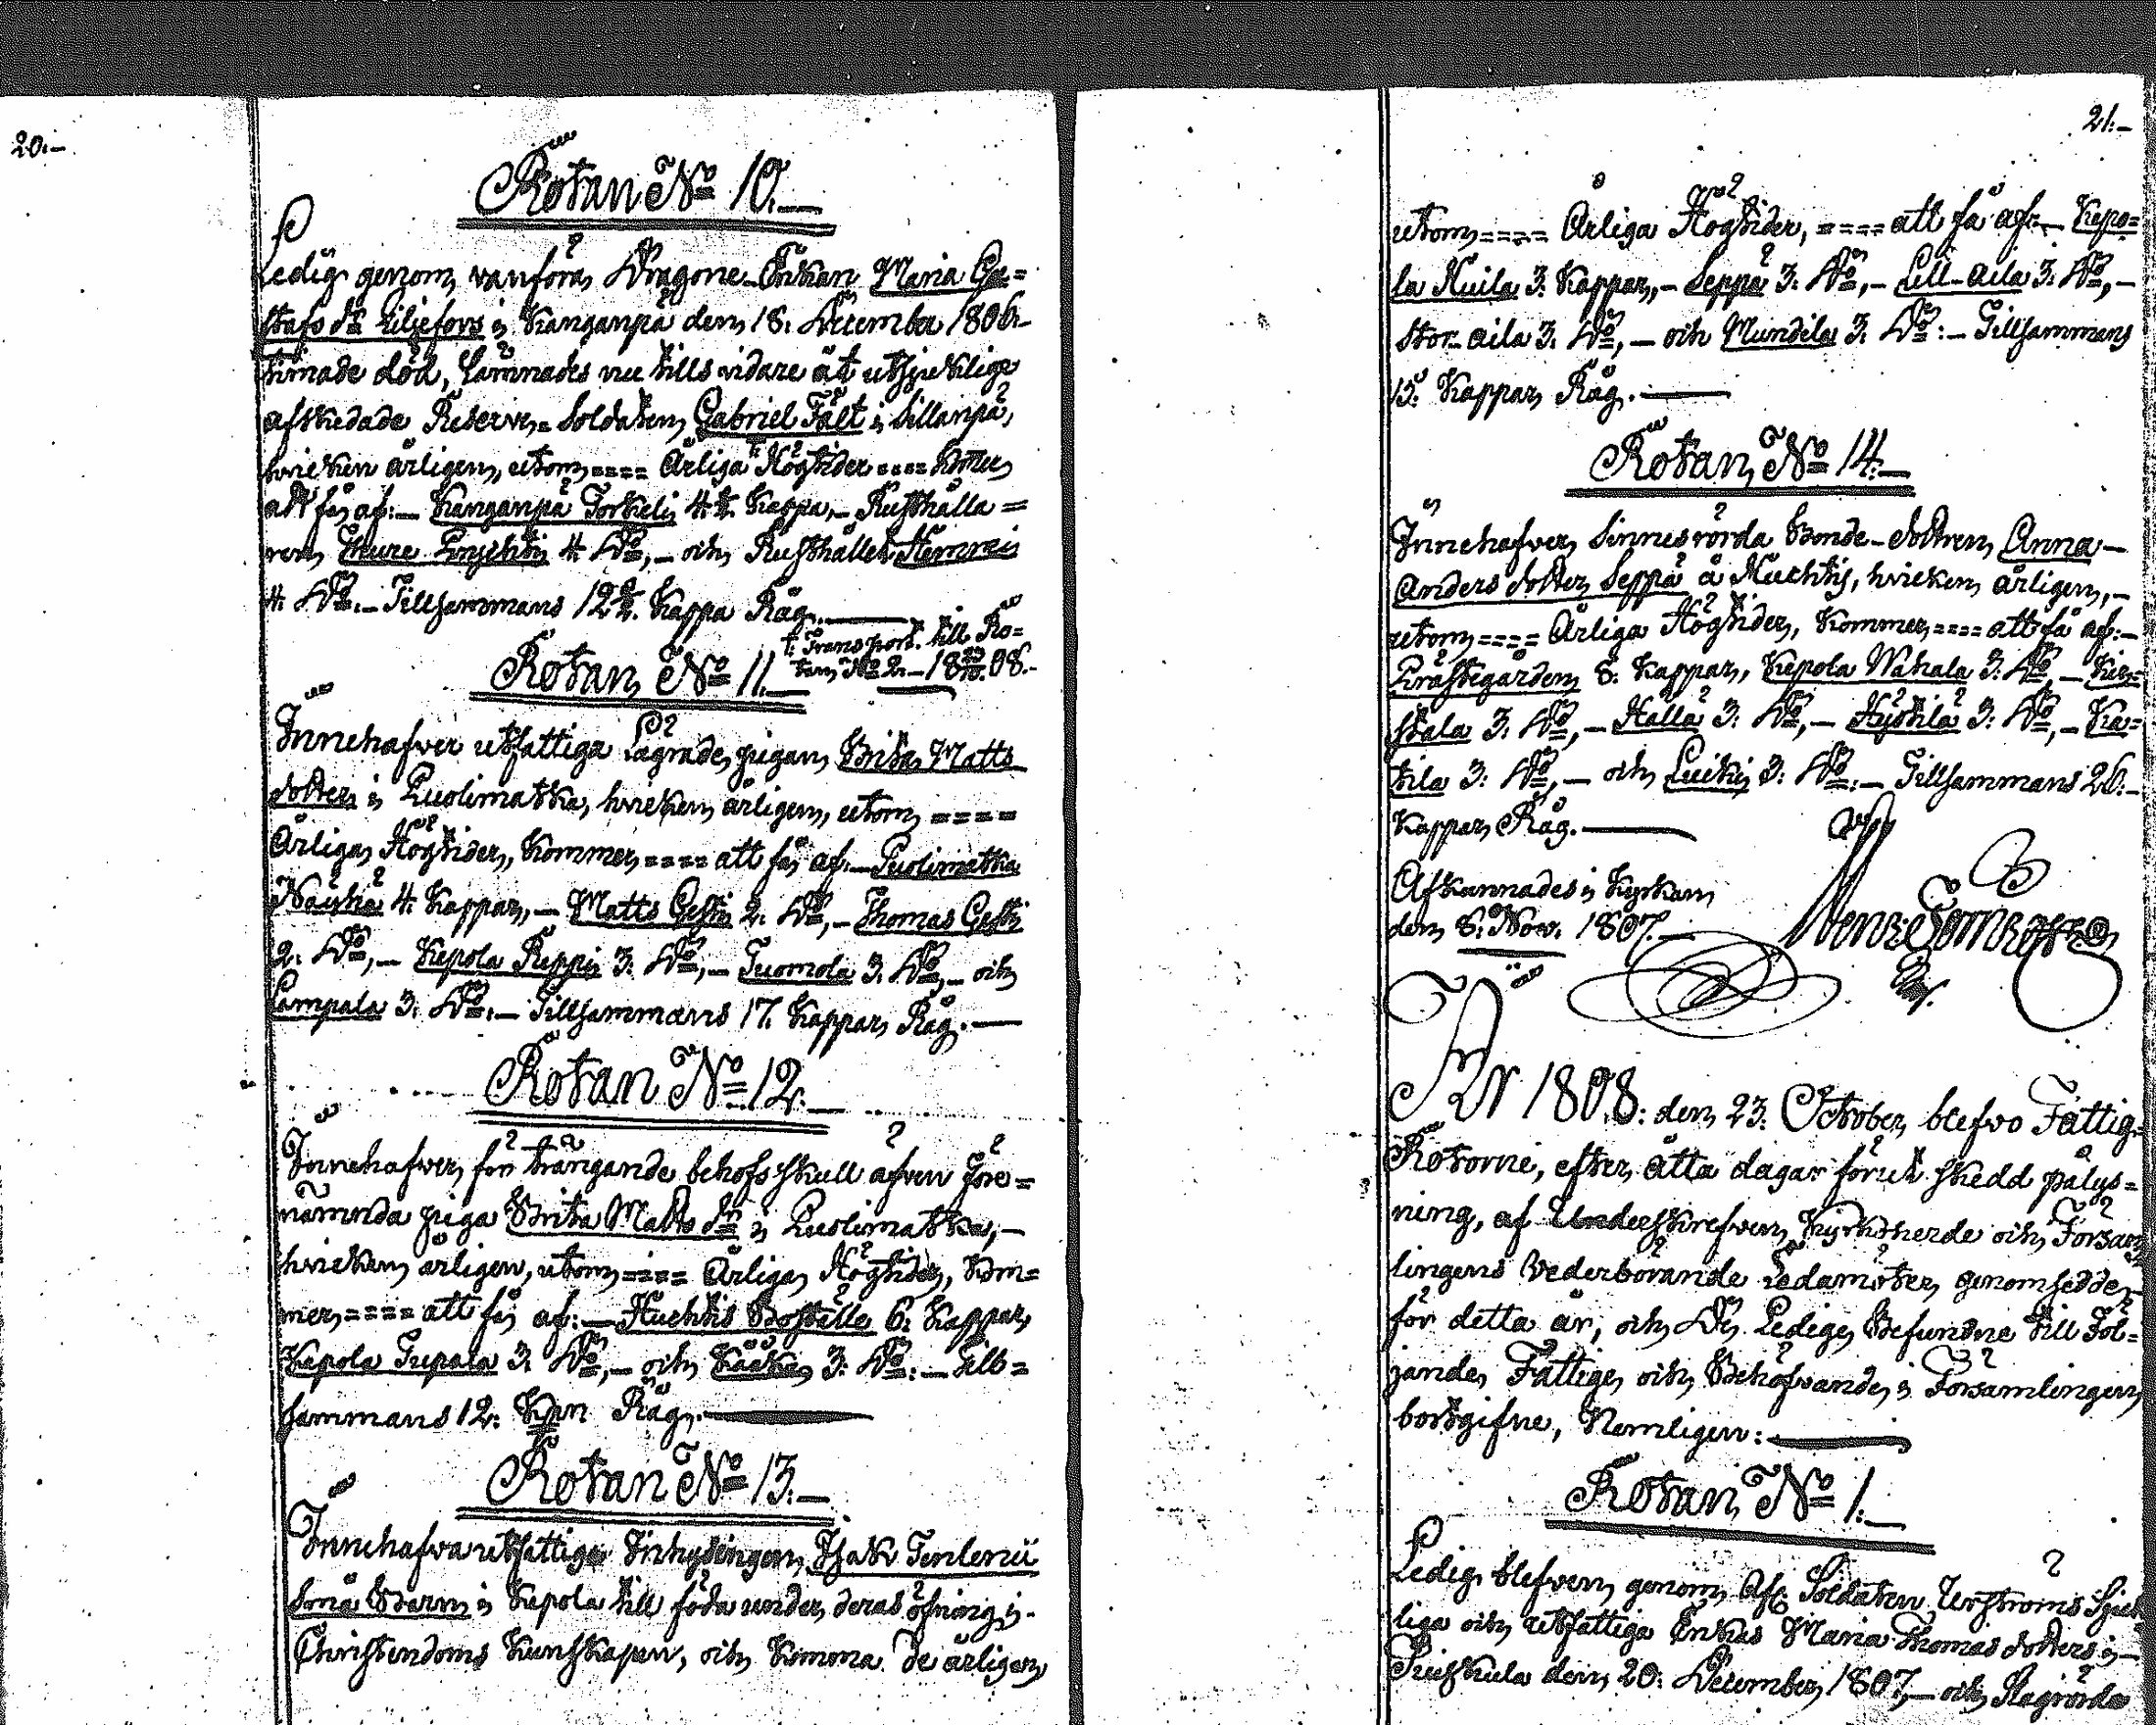 20.-
Rotan No 10.
Ledig genom vanföra Dragone-Enkan Maria Gu=
stafs dr Liljefors i Kanganpä den 18. December 1806.
timade död, lämnades nu tills vidare åt utsjuklige
afskedade Reserve=Soldaten Gabriel Fält i Sillanpä,
hvicken årligen, utom ==== Årliga Högtider ==== kommer
att få af:_ Kanganpä Torkeli 4½ Kappa,_ Rusthålla=
ren Thure Knychti 4 Do,_ och Rusthållet Hemmei
4. Do._ Tillsammans 12½ Kappa Råg.
t. Transport. till Ro=
Rotan No 11._ tan No 2._ 18 23/10 08.
Innehafver utfattiga Lägrade pigan Brita Matts
dotter i Puolimatka, hvicken årligen, utom ====
Årliga Högtider, kommer ==== att få af:_ Puolimatka
Näuhä 4. Kappar,_ Matts Gesti 2. Do,_ Thomas Gesti
2. Do,_ Kepola Reppi 3. Do,_ Tuomola 3. Do,_ och
Lampala 3. Do._ Tillsammans 17. Kappar Råg._
Rotan No 12._
Innehafver för trängande behofs skull äfven före=
nämnda piga Brita Matts dr i Puolimatka,_
hvicken årligen, utom ==== Årliga Högtider, kom=
mer ==== att få af:_ Huchtis Boställe 6. Kappar,
Kepola Tupala 3. Do,_ och Kååka 3. Do:_ Till=
sammans 12. Kpr Råg.
Rotan No 13._
Innehafva utfattige Inhysingen Isak Tenlenii
Små Barn i Kepola till föda under deras öfning i
Christendoms Kunskapen, och komma de årligen,
21.-
utom ==== Årliga Högtider, ==== att få af:_ Kepo=
la Kuila 3. Kappar,_ Seppä 3. Do,_ Lill-aila 3. Do,_
Stor-aila 3. Do,_ och Mundila 3. Do:_ Tillsammans
15. Kappar Råg.
Rotan No 14._
Innehafver Sinnesrörda Bonde-dottren Anna_
Anders dotter Seppä å Kuchtis, hvicken årligen,_
utom ==== Årliga Högtider, kommer ==== att få af:_
Prästegården 8. Kappar, Kepola Wahala 3. Do,_ Kir=
stala 3. Do,_ Hallä 3. Do,_ Hyötilä 3. Do,_ Ka=
tila 3. Do,_ och Luiki 3. Do._ Tillsammans 26._
Kappar Råg.
Afkunnades i Kyrkan
den 8. Nov. 1807._
År 1808. den 23. October, blefvo Fattig=
Rotorne, efter åtta dagar förut skedd pålys=
ning, af Underskrefven Kyrkoherde och Försam
lingens Vederbörande Ledamöter genomsedde
för detta år, och De Ledige Befundne till Föl=
jande Fattige och Behöfvande i Församlingen
bortgifne, Nemligen:
Rotan No 1._
Ledig blefven genom Afsk. Soldaten Urströms Sjuk
liga och utfattiga Enkas Maria Thomas dotters i_
Puiskula den 20. December 1807,_ och Slagrörda